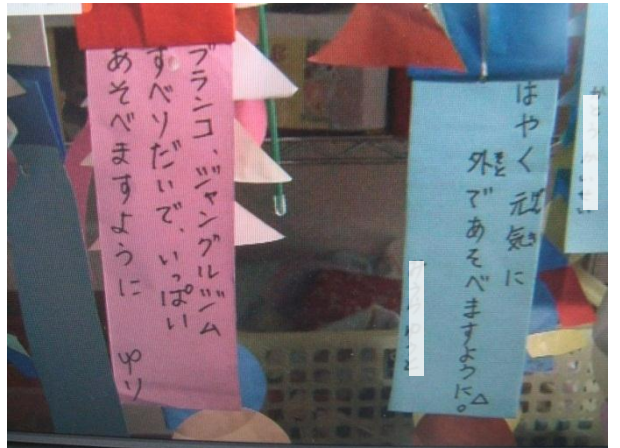 ブランコ、ジャングルジム
すべりだいで、いっぱい
あそべますように ゆり
はやく元気に
げんき
外であそべますように。
そと